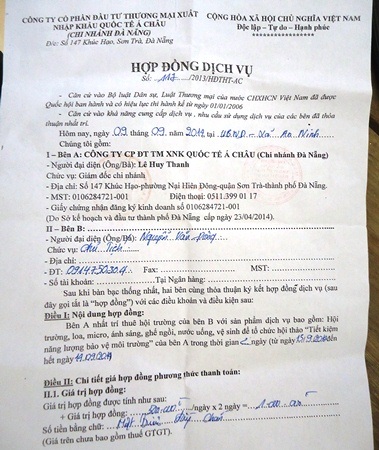 CÔNG TY CỔ PHẦN ĐẦU TƯ THƯƠNG MẠI XUẤT
NHẬP KHẨU QUỐC TẾ Á CHÂU
(CHI NHÁNH ĐÀ NẴNG)
Đ/c: Số 147 Khúc Hạo, Sơn Trà, Đà Nẵng
CỘNG HÒA XÃ HỘI CHỦ NGHĨA VIỆT NAM
Độc lập – Tự do – Hạnh phúc
****************
HỢP ĐỒNG DỊCH VỤ
Số: /2013/HĐTHT-AC
- Căn cứ vào Bộ luật Dân sự, Luật Thương mại của nước CHXHCN Việt Nam đã được
Quốc hội ban hành và có hiệu lực thi hành kể từ ngày 01/01/2006
- Căn cứ vào khả năng cung cấp dịch vụ, nhu cầu sử dụng dịch vụ của các bên đã thỏa
thuận nhất trí.
Hôm nay, ngày 09 tháng 09 năm 2014 tại U.B.N.D
Chúng tôi gồm:
I – Bên A: CÔNG TY CP ĐT TM XNK QUỐC TẾ Á CHÂU (Chi nhánh Đà Nẵng)
- Người đại diện (Ông/Bà): Lê Huy Thanh
Chức vụ: Giám đốc chi nhánh
- Địa chỉ: Số 147 Khúc Hạo-phường Nại Hiên Đông-quận Sơn Trà-thành phố Đà Nẵng.
- MST: 0106284721-001 Điện thoại: 0511.399 01 17
- Giấy chứng nhận đăng ký kinh doanh số 0106284721-001
(Do Sở kế hoạch và đầu tư thành phố Đà Nẵng cấp ngày 23/04/2014).
II – Bên B:
- Người đại diện (Ông/Bà): Nguyễn Văn
Chức vụ: Chủ tịch
- Địa chỉ:
- ĐT: Fax: MST:
- Số tài khoản: Tại Ngân hàng:
Sau khi bàn bạc thống nhất, hai bên cùng thỏa thuận ký kết hợp đồng dịch vụ (sau
đây gọi tắt là "hợp đồng") với các điều khoản và điều kiện sau:
Điều I: Nội dung hợp đồng:
Bên A nhất trí thuê hội trường của bên B với sản phẩm dịch vụ bao gồm: Hội
trường, loa, micro, ánh sáng, ghế ngồi, nước uống, vệ sinh để tổ chức hội thảo "Tiết kiệm
năng lượng bảo vệ môi trường" của bên A trong thời gian ngày (từ ngày
hết ngày
Điều II: Chi tiết giá hợp đồng phương thức thanh toán:
II.1. Giá trị hợp đồng:
Giá trị hợp đồng được tính như sau:
+ Giá trị hợp đồng: /ngày x 2 ngày = 1.000.000đ
Số tiền bằng chữ: Một Triệu Chẵn
(Giá trên chưa bao gồm thuế GTGT).